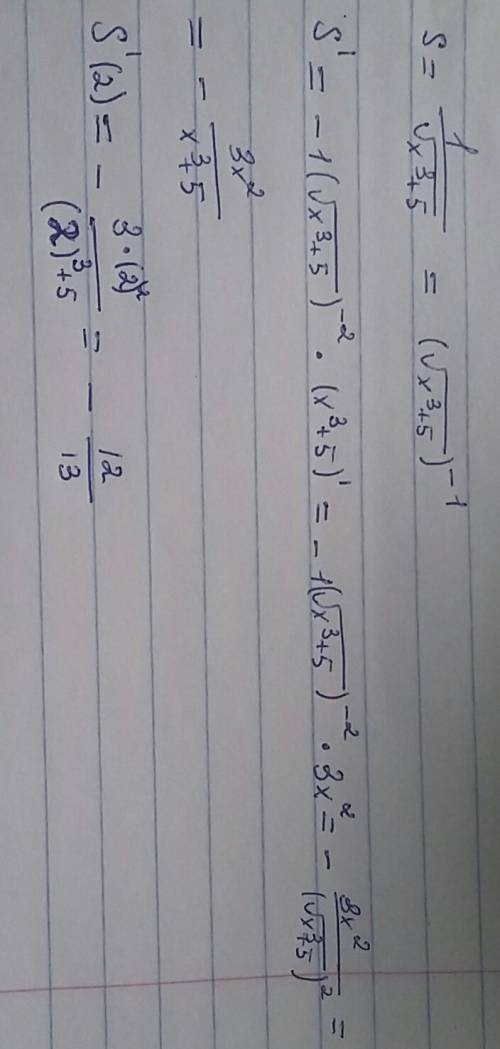 S = 1/√(x³+5) = (√(x³+5))⁻¹
S' = -1(√(x³+5))⁻² · (x³+5)' = -1(√(x³+5))⁻² · 3x² = - 3x²/(√(x³+5))² =
= - 3x²/(x³+5)
S'(2) = - 3·(2)²/((2)³+5) = - 12/13